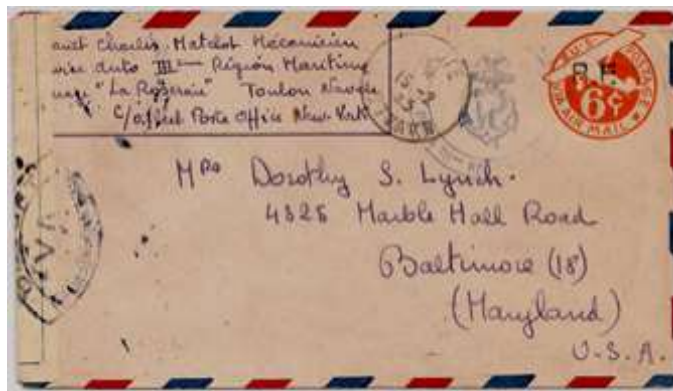 Charles Matelot Mécanicien
Auto IIIème Région Maritime
"La Roseraie" Toulon Naval
c/o Fleet Poste Office New-York
U.S. POSTAGE
R F
6¢
VIA AIR MAIL
Mrs Dorothy S. Lynch.
4325 Marble Hall Road
Baltimore (18)
(Maryland)
U.S.A.